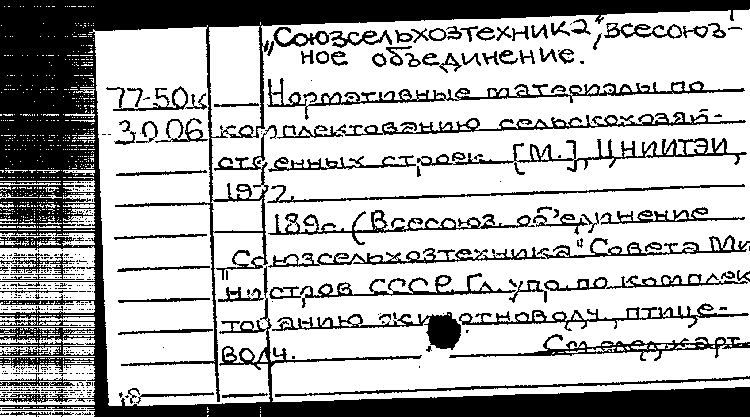 „Союзсельхозтехника", Всесоюз-
ное объединение.
77-50к Нормативные материалы по
3006 комплектованию сельскохозяй-
ственных строек. [М.], ЦНИИТЭИ,
1977.
189с. (Всесоюз. об'единение
„Союзсельхозтехника" Совета Ми
нистров СССР. Гл. упр. по комплек
тованию животноводч., птице-
водч. См. след. карт.
18